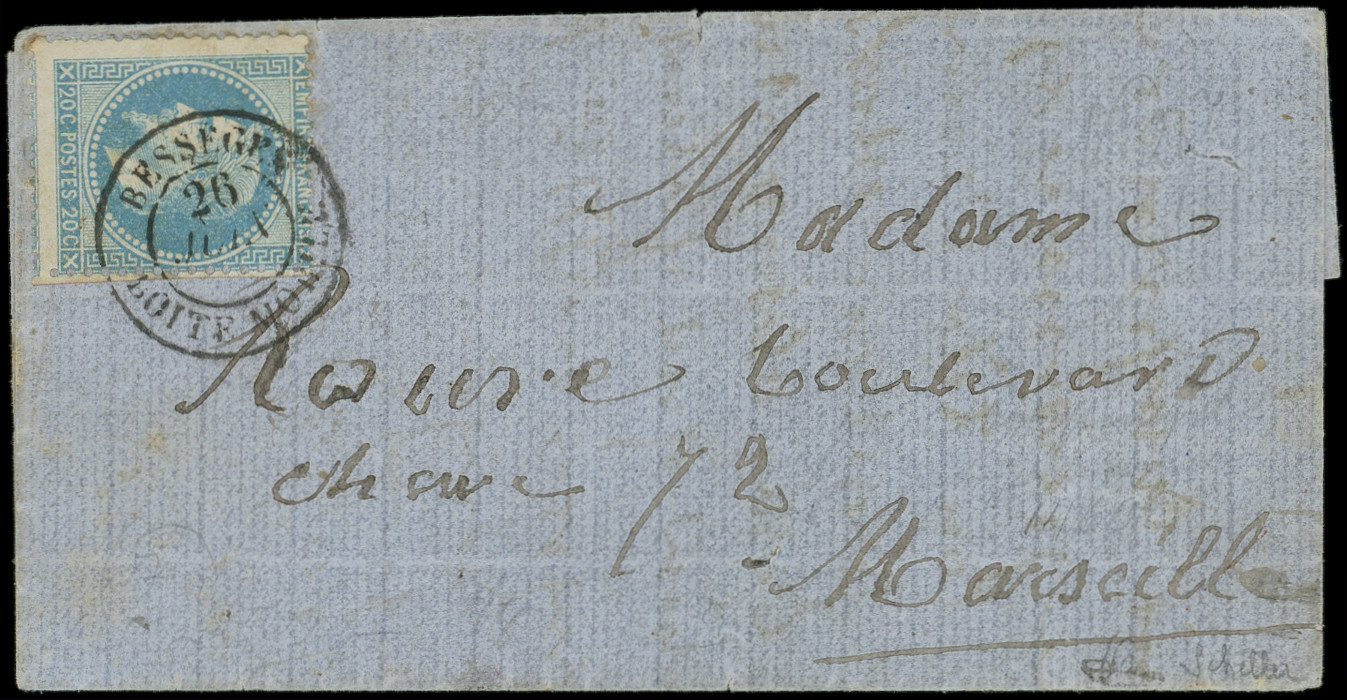 20 C POSTES 20 C
EMPIRE FRANÇAIS
BESSÈGES
26
JUIN
BOITE MOBILE
Madame
boulevard
chave 72
Marseille
Schiller